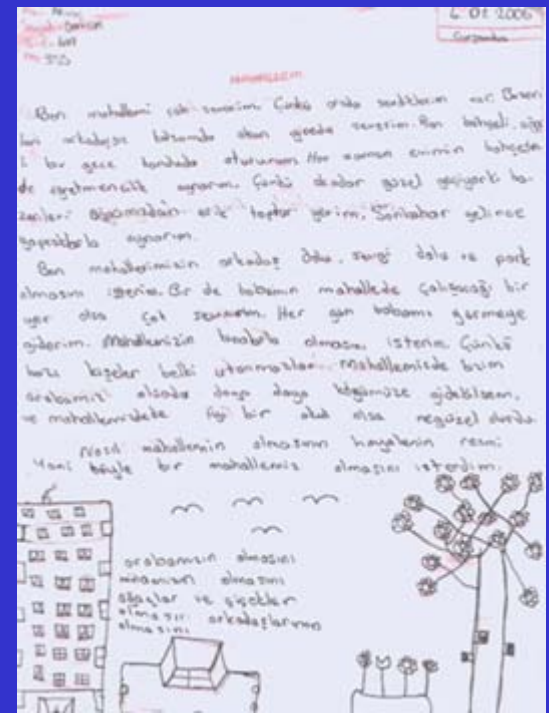 6 01 2006
Çarşamba
MAHALLEM
Ben mahallemi çok severim. Çünkü orda sevdiklerim var. Bazen
arkadaşca olan severim. Ben bahçeli,
bir gece konduda oturunum. Her zaman evimin bahçesin
de ögretmencilik oynarım. Çünkü okadar güzel geçiyorki ba-
zenleri ağacımadan erik toplar yerim. Sonbahar gelince
yapraklarla oynarım.
Ben mahallemizin arkadaş dolu, sevgi dolu ve park
olmasını isterim. Bir de babamın mahallede çalışacağı bir
yer olsa çok sevinirim. Her gün babamı görmeye
giderim. Mahallemizin olmasını isterim. Çünkü
bazı kişeler belki utanmazlar. Mahallemizde bizim
arabamız olsada doya doya köyümüze gidebilsem.
ve mahallemizdede iyi bir okul olsa negüzel olurdu.
Nasıl mahallemin olmasının hayalenin resmi
Yani böyle bir mahallemiz olmasını isterdim.
arabamızın olmasını
olmasını
ağaçlar ve çiçekler
olması arkadaşlarımın
olmasını